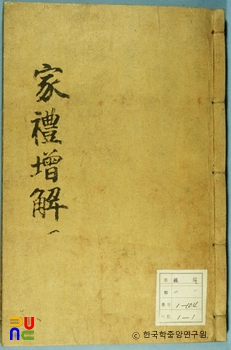 家禮增解
一
1-1
© 한국학중앙연구원